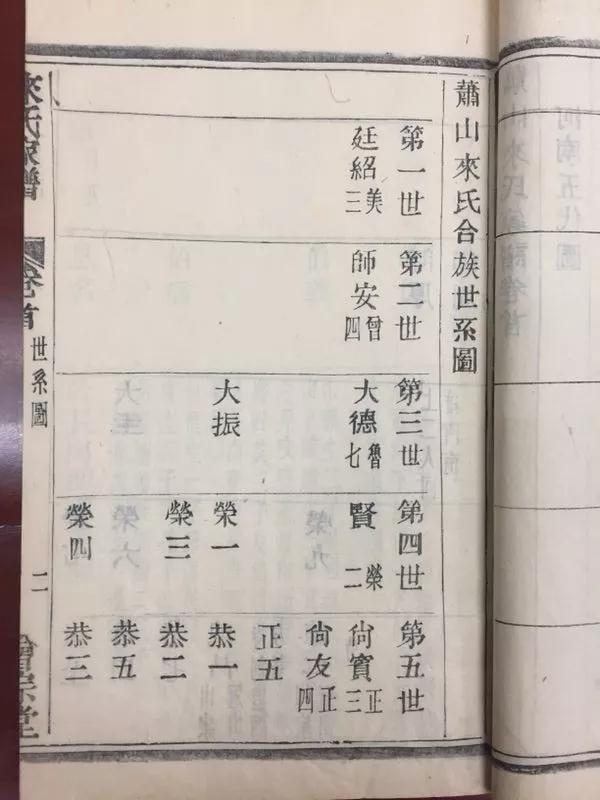 蕭山來氏合族世系圖
第一世 第二世 第三世 第四世 第五世
廷紹 美三 師安 曾四 大德 魯七 賢 榮二 尙賓 正三
尙友 正四
正五
大振 榮一 恭一
榮三 恭二
恭五
榮四 恭三
來氏家譜 卷首 世系圖 二 會宗堂